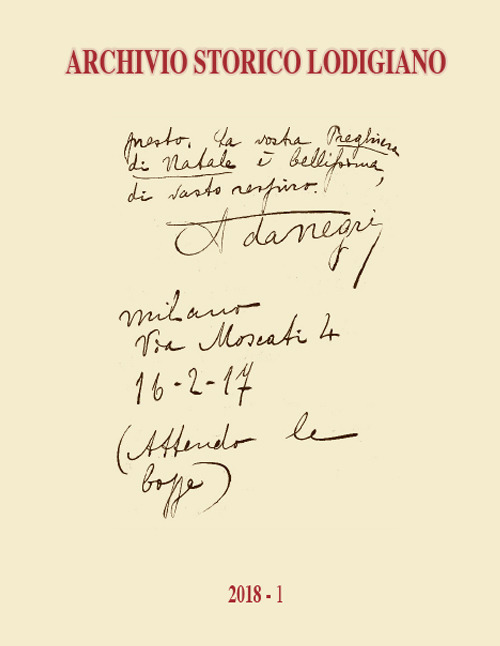 ARCHIVIO STORICO LODIGIANO
questo. La vostra Preghiera
di Natale è bellissima,
di vasto respiro.
Ada Negri
Milano
Via Moscati 4
16-2-17
(Attendo le
bozze)
2018 - 1